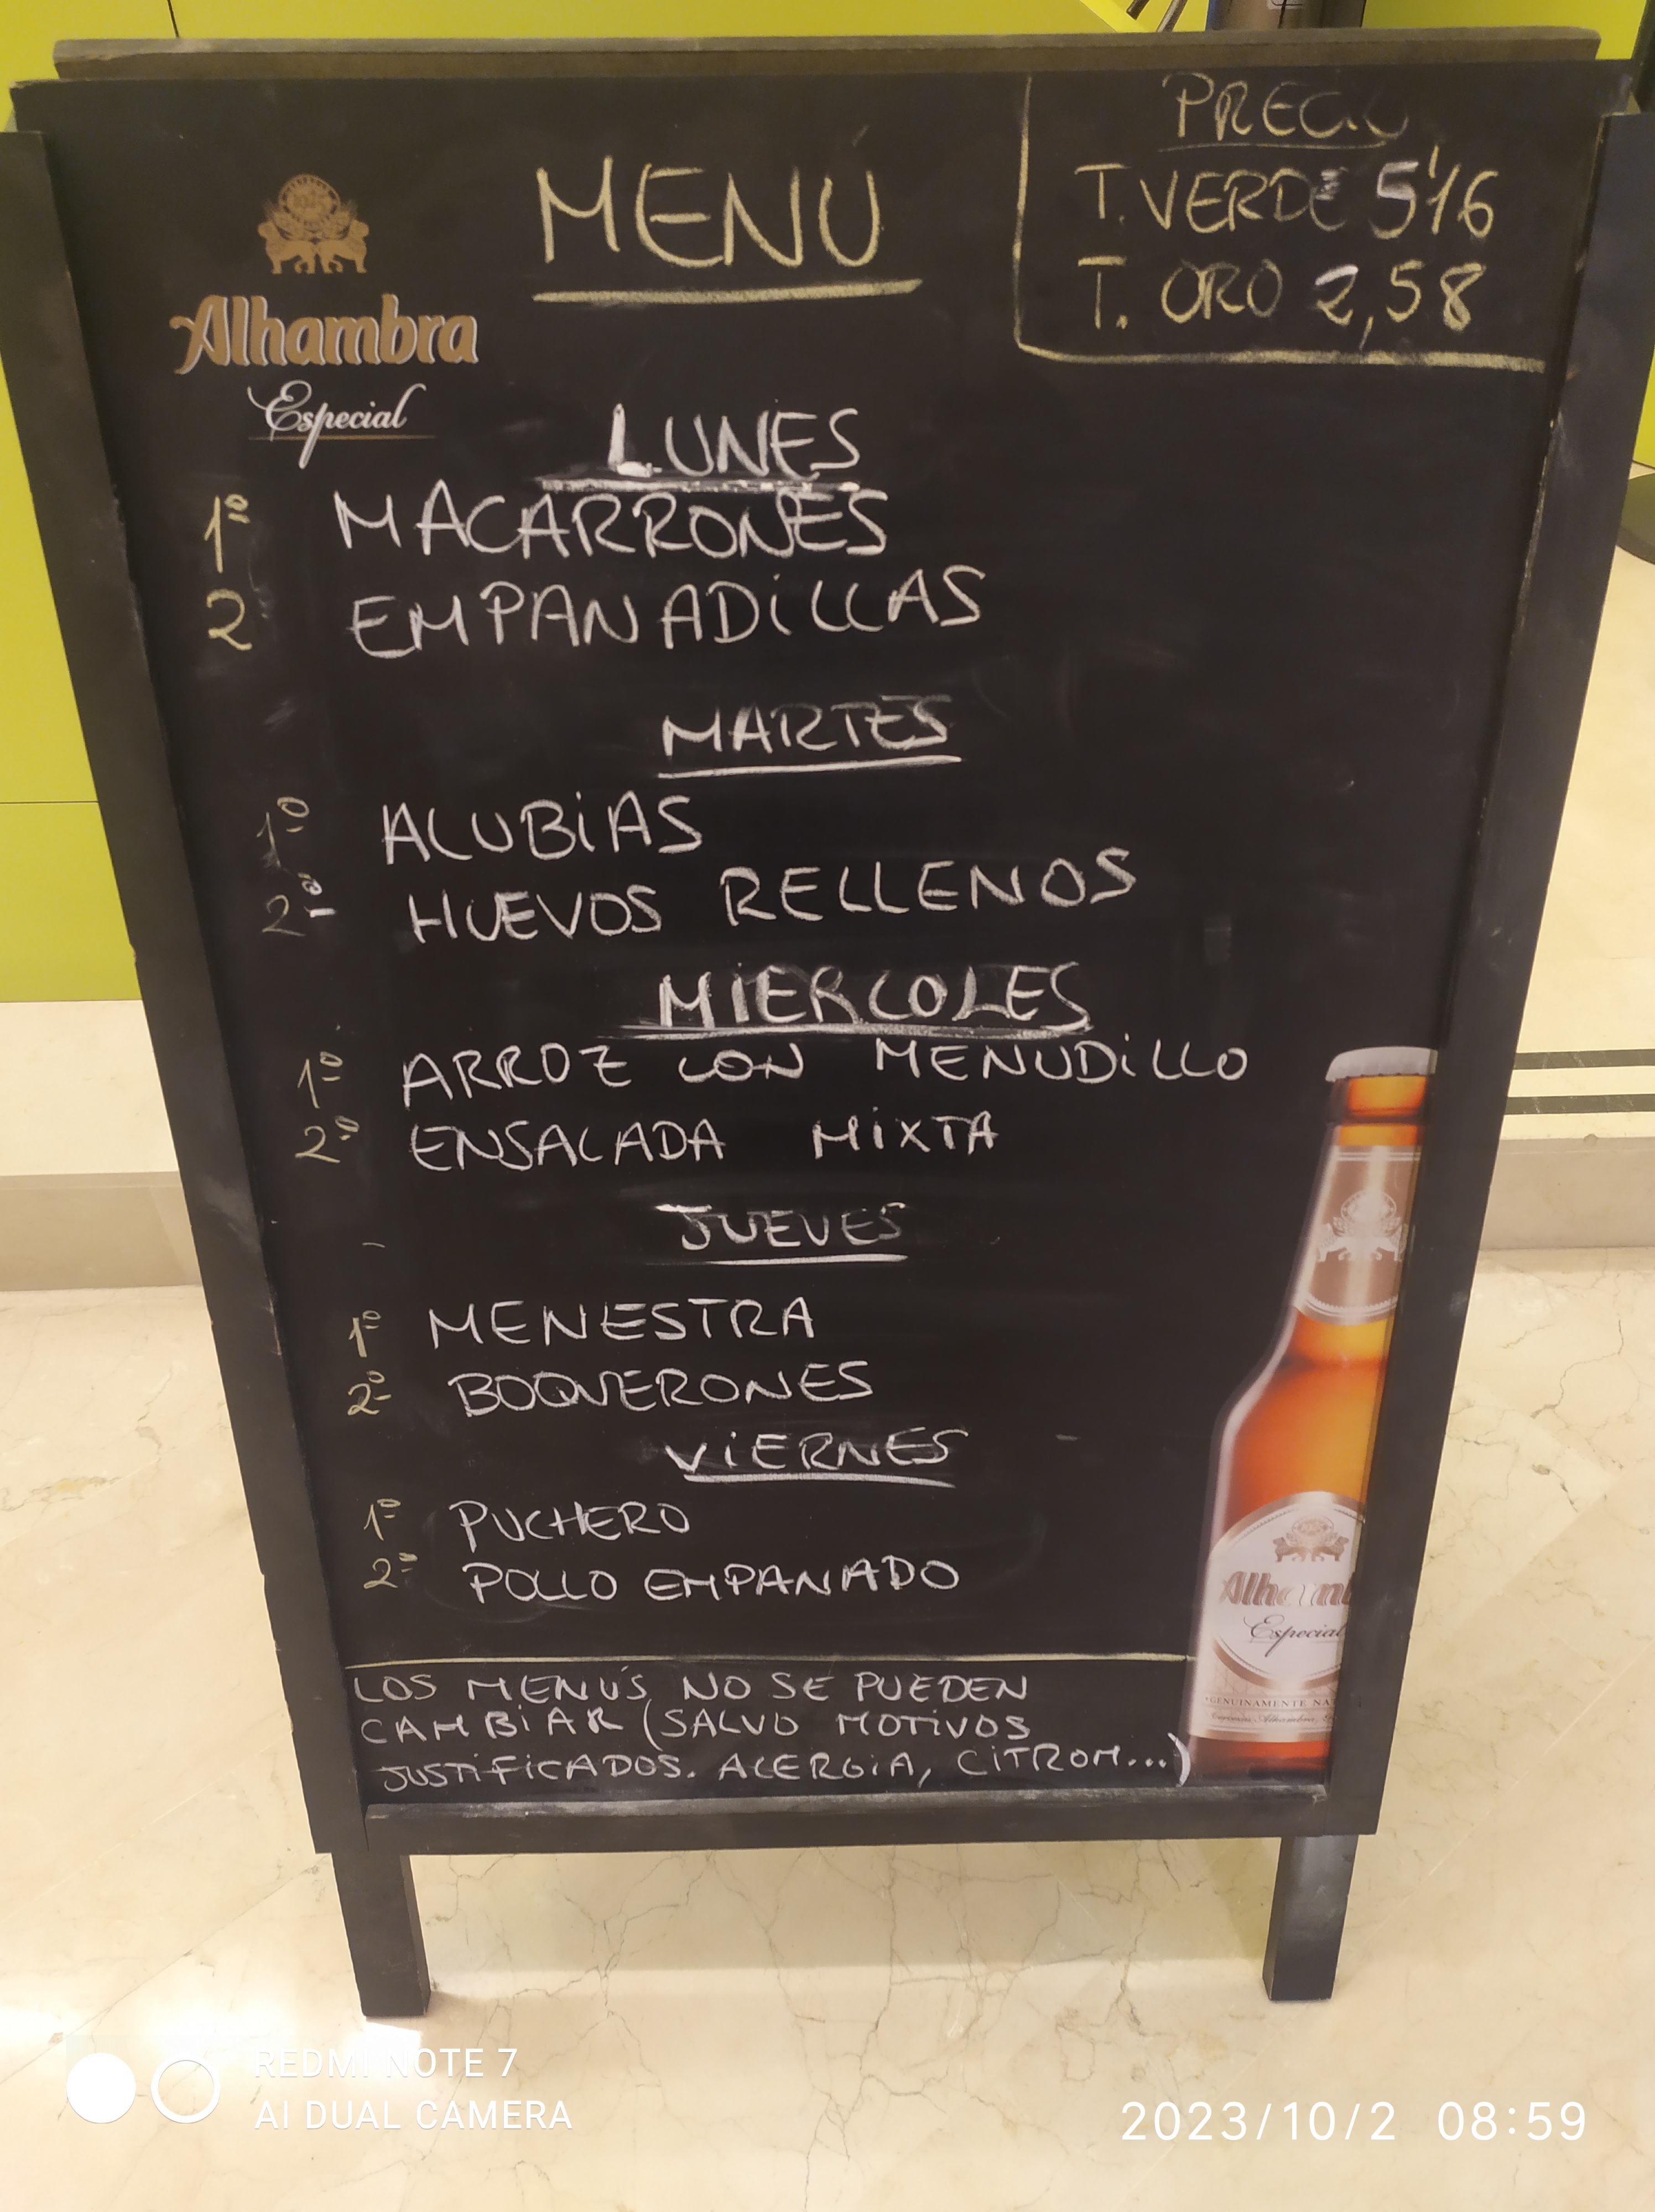 PRECIO
T. VERDE 5'16
T. ORO 2,58
MENU
Alhambra
Especial
LUNES
1º MACARRONES
2 EMPANADiLLAS
MARTES
1º ALUBiAS
2º HUEVOS RELLENOS
MiERCOLES
1º ARROZ CON MENUDiLLO
2º ENSALADA MiXTA
JUEVES
1º MENESTRA
2º BOQUERONES
ViERNES
1º PUCHERO
2º POLLO EMPANADO
LOS MENÚS NO SE PUEDEN
CAMBiAR (SALVO MOTiVOS
JUSTiFiCADOS. ALERGiA, CiTROM...)
Alhamb
Especial
GENUINAMENTE
REDMI NOTE 7
AI DUAL CAMERA
2023/10/2 08:59